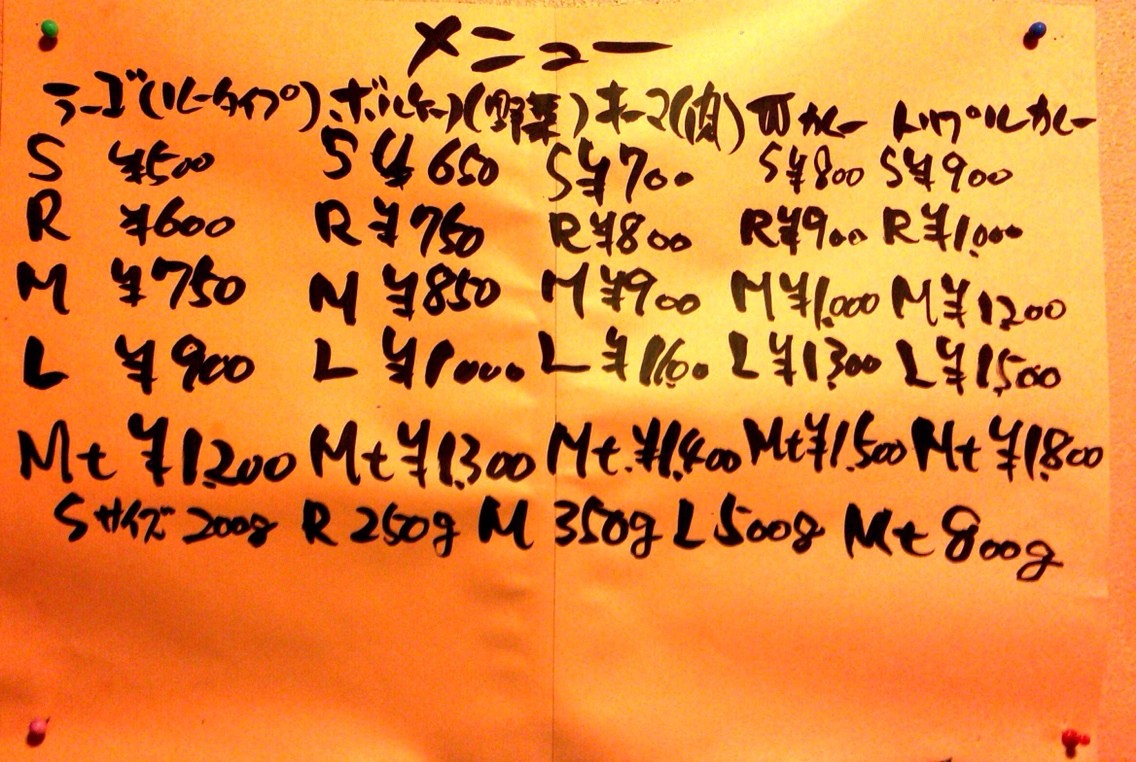 メニュー
ラーゴ(ルータイプ) ボルケーノ(野菜) キーマ(肉) Wカレー トリプルカレー
S ¥500 S ¥650 S ¥700 S ¥800 S ¥900
R ¥600 R ¥750 R ¥800 R ¥900 R ¥1,000
M ¥750 M ¥850 M ¥900 M ¥1,000 M ¥1,200
L ¥900 L ¥1000 L ¥1,100 L ¥1,300 L ¥1,500
Mt ¥1,200 Mt ¥1,300 Mt. ¥1,400 Mt ¥1,500 Mt ¥1,800
Sサイズ 200g R 250g M 350g L 500g Mt 800g